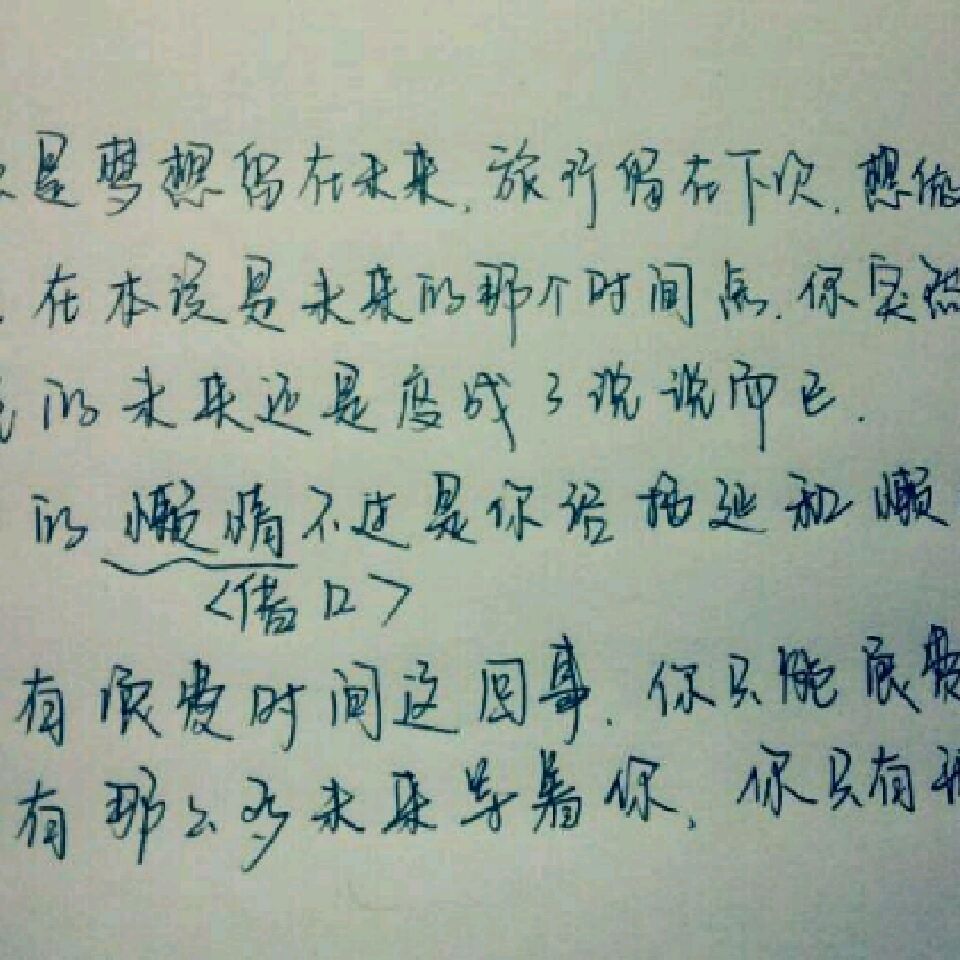 是梦想留在未来,旅行留在下次,想做
在本该是未来的那个时间点,你突然
的未来还是变成了说说而已.
的懒惰不过是你给拖延和懒
<借口>
有浪费时间这回事,你只能浪费
有那么多未来等着你,你只有